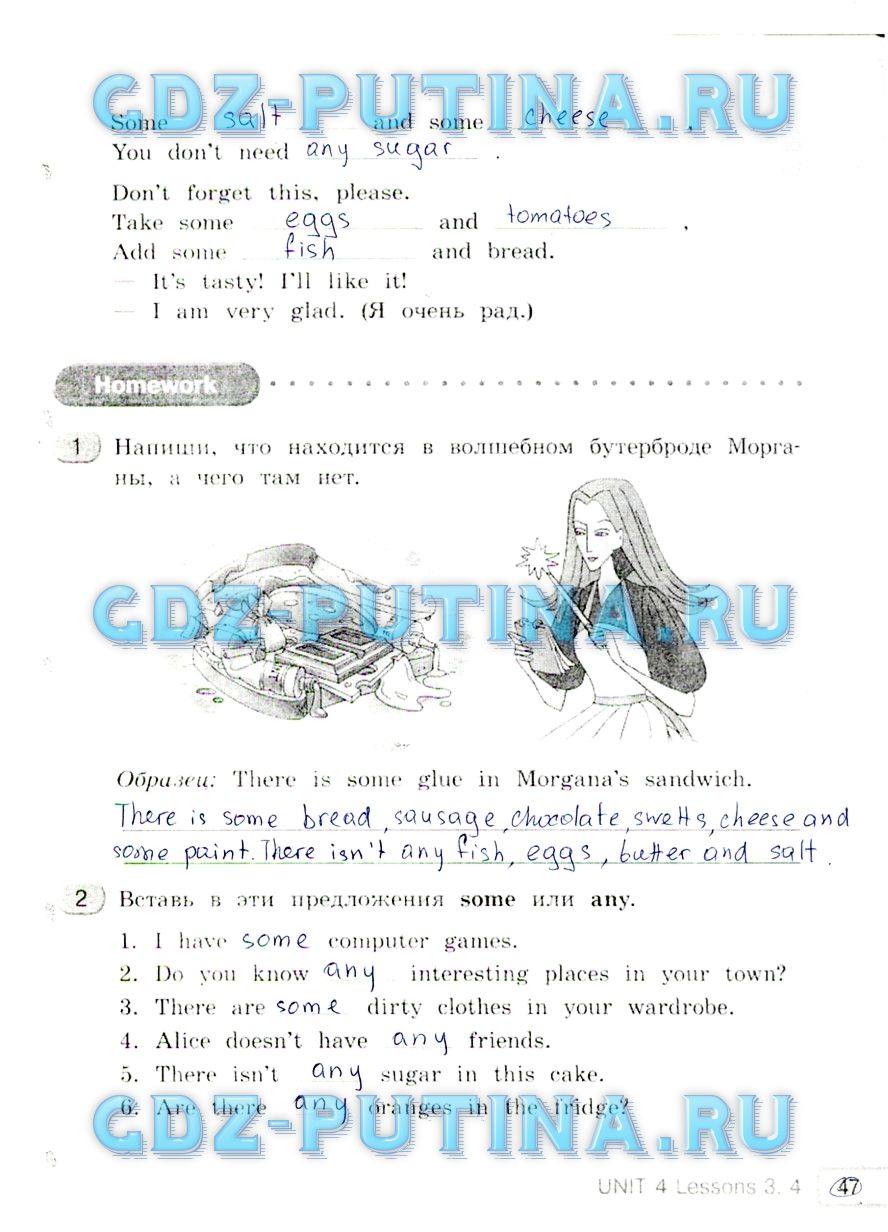 GDZ-PUTINA.RU
Some salt and some cheese ,
You don't need any sugar .
Don't forget this, please.
Take some eggs and tomatoes ,
Add some fish and bread.
— It's tasty! I'll like it!
— I am very glad. (Я очень рад.)
Homework
1 Напиши, что находится в волшебном бутерброде Морга-
ны, а чего там нет.
GDZ-PUTINA.RU
Образец: There is some glue in Morgana's sandwich.
There is some bread, sausage, chocolate, swetts, cheese and
some paint. There isn't any fish, eggs, butter and salt.
2 Вставь в эти предложения some или any.
1. I have some computer games.
2. Do you know any interesting places in your town?
3. There are some dirty clothes in your wardrobe.
4. Alice doesn't have any friends.
5. There isn't any sugar in this cake.
6. Are there any oranges in the fridge?
GDZ-PUTINA.RU
UNIT 4 Lessons 3. 4 47